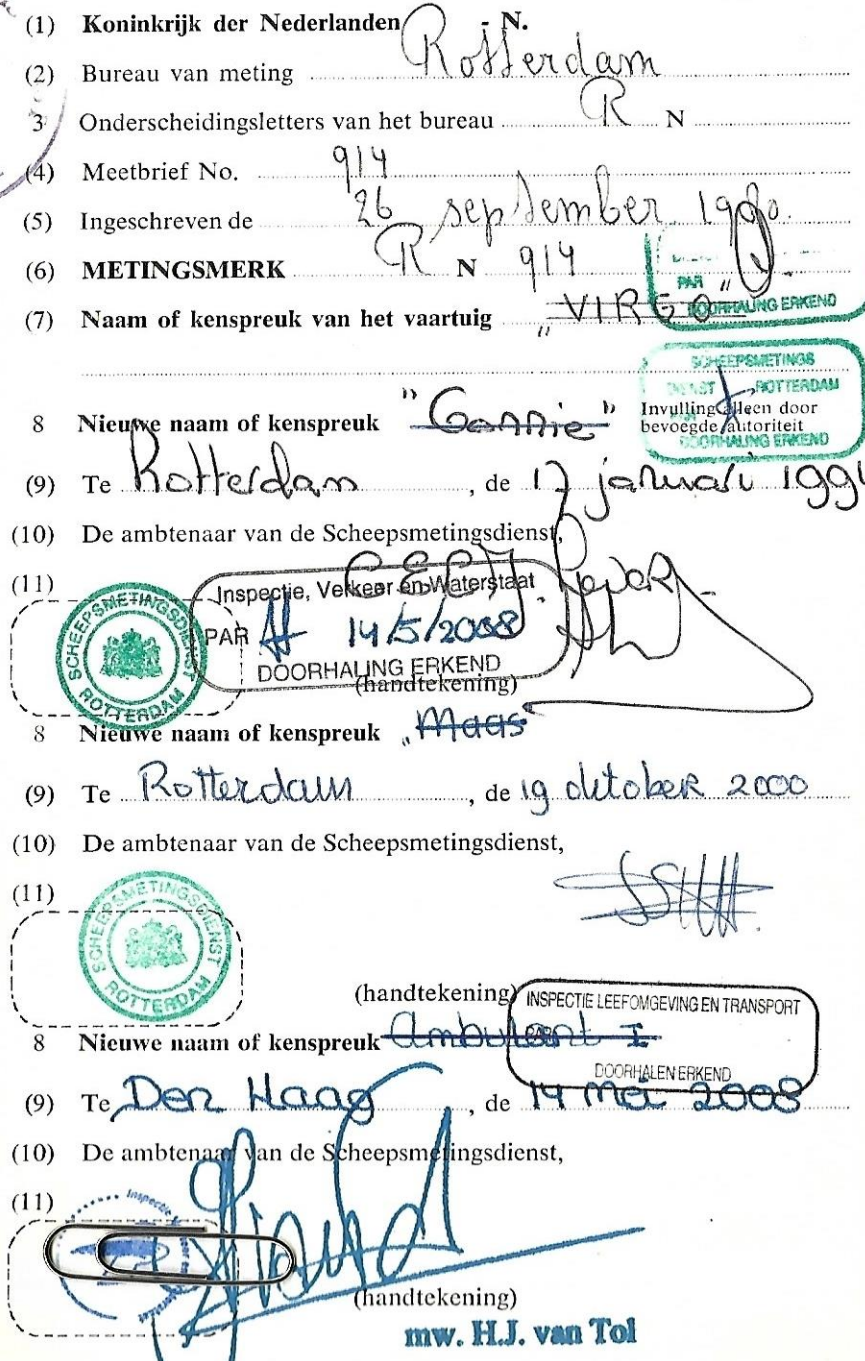 (1) Koninkrijk der Nederlanden - N.
(2) Bureau van meting Rotterdam
3 Onderscheidingsletters van het bureau R N
(4) Meetbrief No. 914
(5) Ingeschreven de 26 september 1980.
(6) METINGSMERK R N 914
PAR
DOORHALING ERKEND
(7) Naam of kenspreuk van het vaartuig "VIRGO"
SCHEEPSMETINGS
DIENST ROTTERDAM
8 Nieuwe naam of kenspreuk "Gonnie" Invulling alleen door
bevoegde autoriteit
DOORHALING ERKEND
(9) Te Rotterdam, de 17 januari 1991
(10) De ambtenaar van de Scheepsmetingsdienst,
(11)
SCHEEPSMETINGSDIENST ROTTERDAM
Inspectie, Verkeer en Waterstaat
PAR 14/5/2008
DOORHALING ERKEND
(handtekening)
8 Nieuwe naam of kenspreuk "Maas
(9) Te Rotterdam, de 19 oktober 2000
(10) De ambtenaar van de Scheepsmetingsdienst,
(11)
SCHEEPSMETINGSDIENST ROTTERDAM
(handtekening)
INSPECTIE LEEFOMGEVING EN TRANSPORT
PAR
DOORHALEN ERKEND
8 Nieuwe naam of kenspreuk Ambulant I
(9) Te Den Haag, de 14 mei 2008
(10) De ambtenaar van de Scheepsmetingsdienst,
(11)
Inspectie
(handtekening)
mw. H.J. van Tol